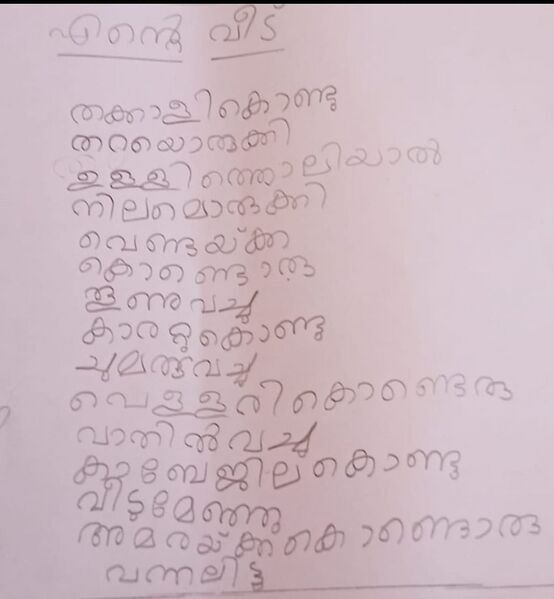 എന്റെ വീട്
തക്കാളികൊണ്ടു
തറയൊരുക്കി
ഉള്ളിത്തൊലിയാൽ
നിലമൊരുക്കി
വെണ്ടയ്ക്ക
കൊണ്ടൊരു
തൂണുവച്ചു
കാരറ്റുകൊണ്ടു
ചുമരുവച്ചു
വെള്ളരികൊണ്ടൊരു
വാതിൽവച്ചു
കാബേജിലകൊണ്ടു
വീടുമേഞ്ഞു
അമരയ്ക്കകൊണ്ടൊരു
വന്നലിട്ടു